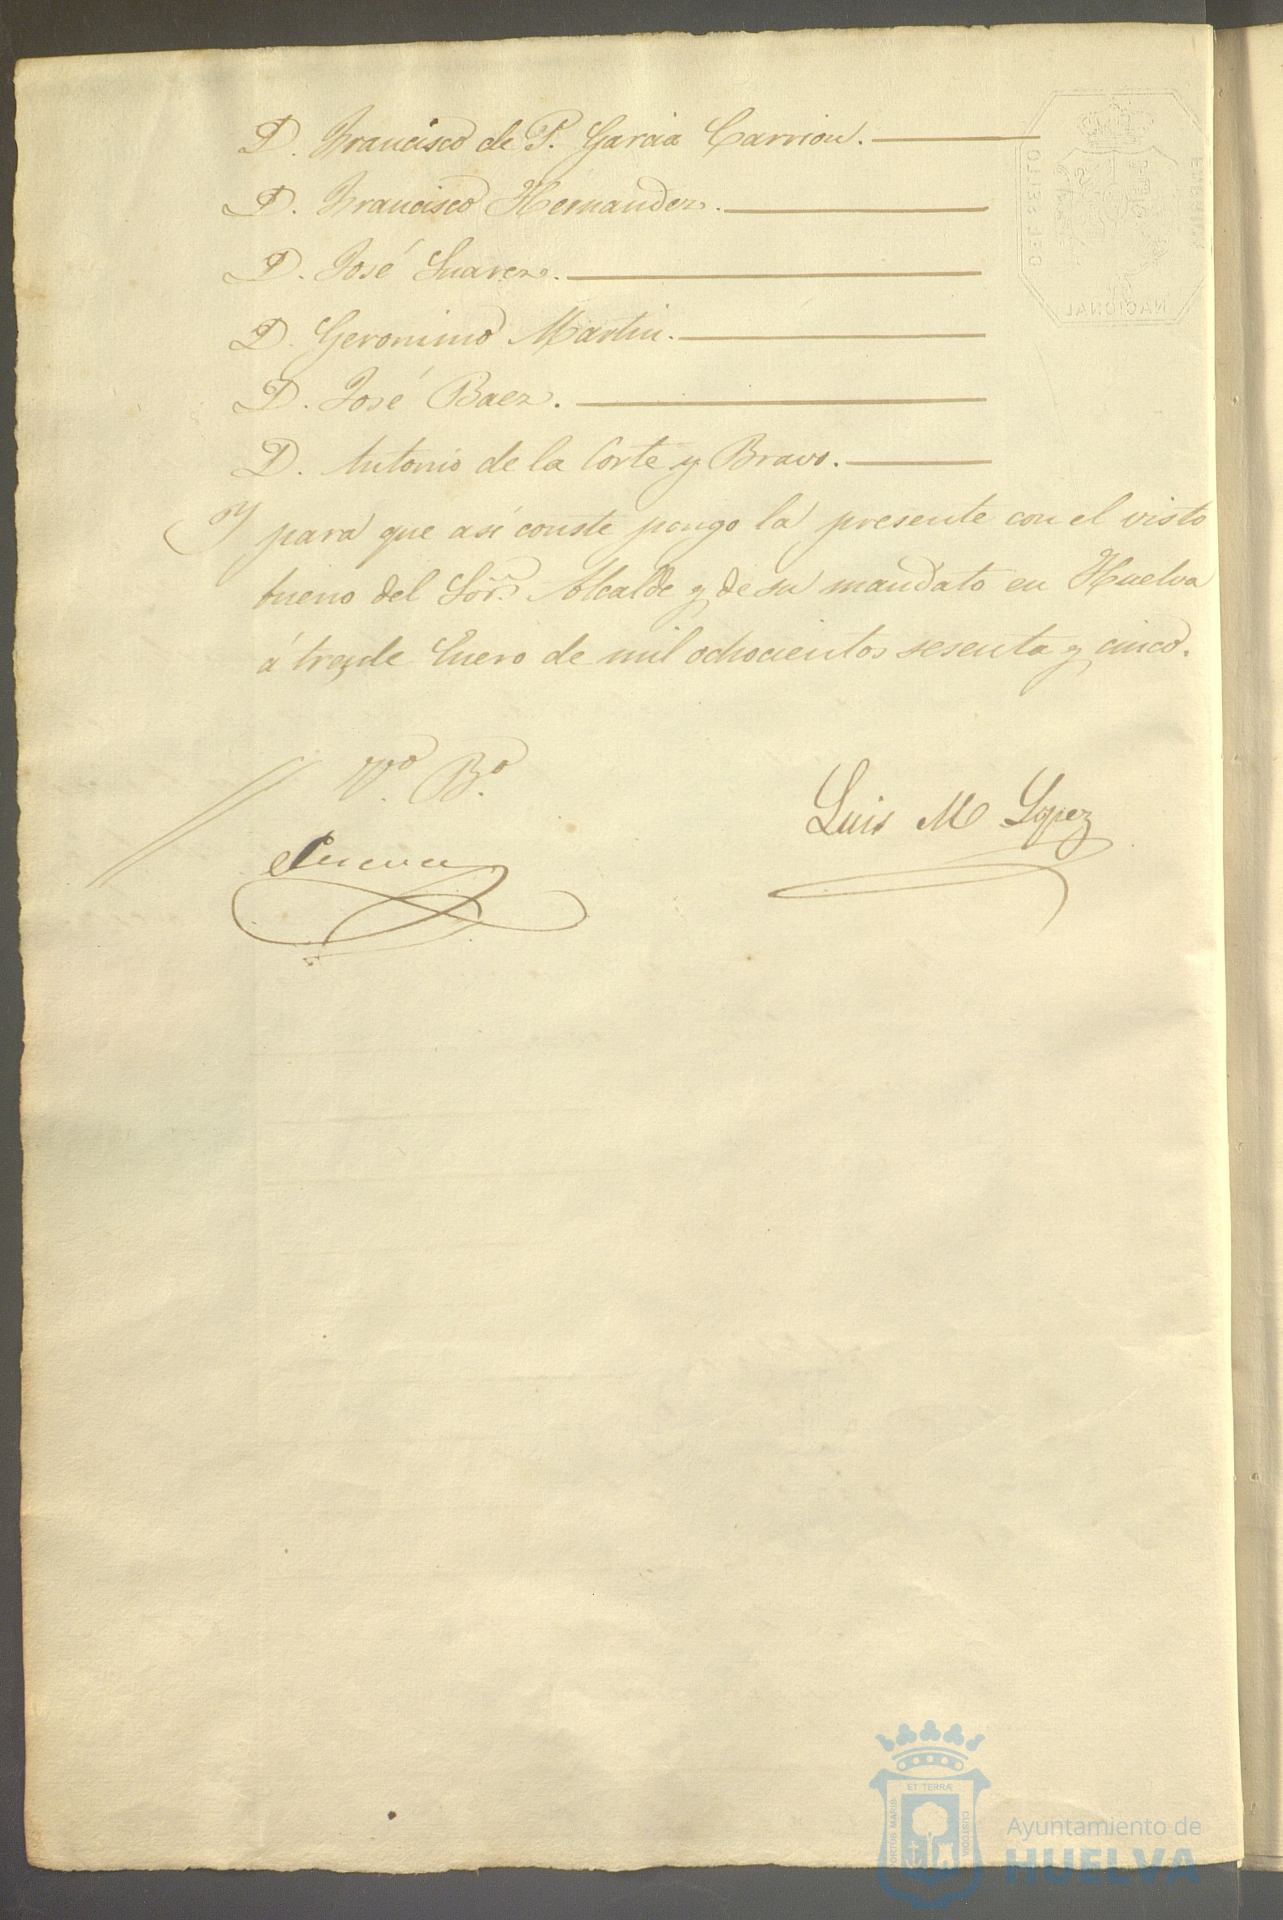 D. Francisco de P. Garcia Carrion.
D. Francisco Hernandez.
D. José Suarez.
D. Geronimo Martin.
D. José Baez.
D. Antonio de la Corte y Bravo.
Y para que asi conste pongo la presente con el visto
bueno del Sōr. Alcalde y de su mandato en Huelva
á trece de Enero de mil ochocientos sesenta y cinco.
Vº. Bº.
Luis M Lopez
DEL SELLO
NACIONAL
ET TERRÆ
PORTUS MARIS
CUSTODIA
Ayuntamiento de
HUELVA